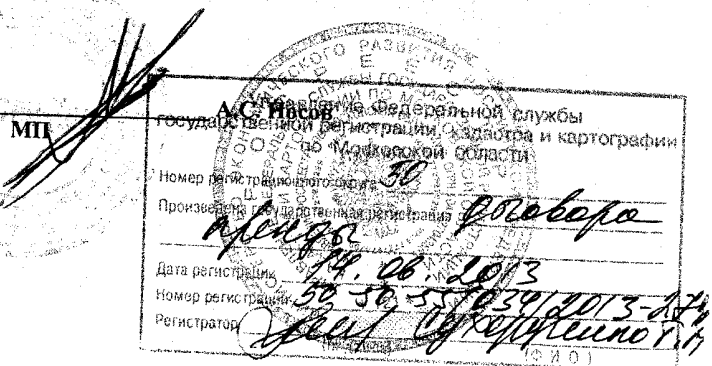 МП
А.С. Носов
Управление Федеральной службы
государственной регистрации, кадастра и картографии
по Московской области
Номер регистрационного округа 50
Произведена государственная регистрация договора
аренды
Дата регистрации 14. 06. 2013
Номер регистрации 50-50-55/034/2013-274
Регистратор
(Ф.И.О.)